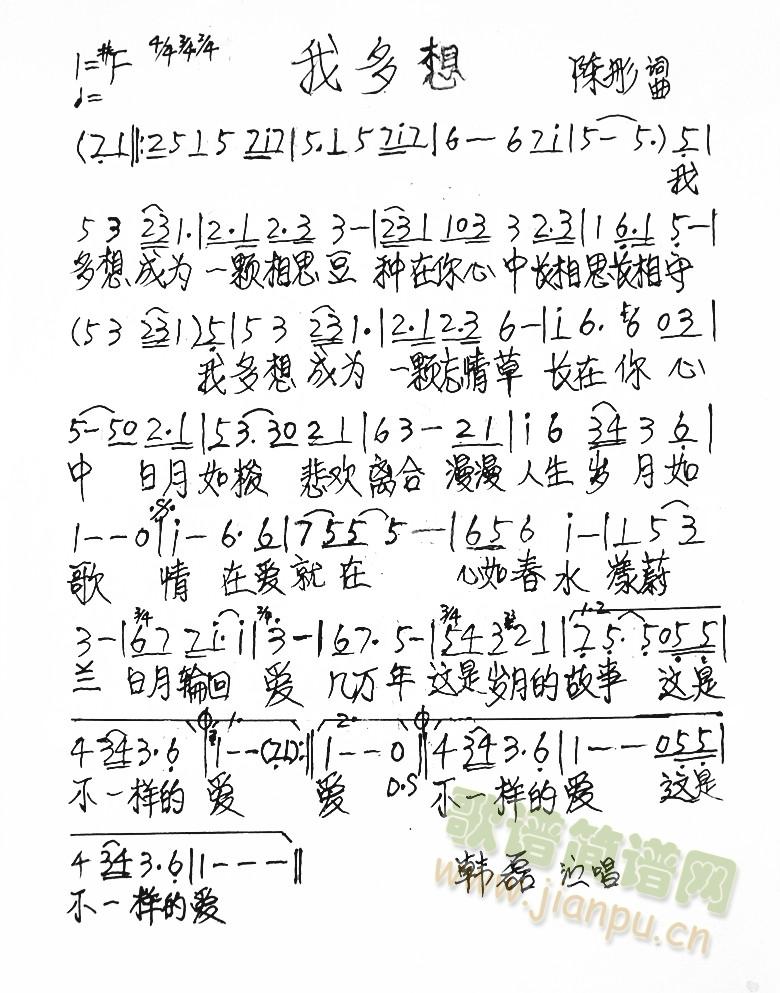 1=#F 4/4 3/4 2/4 我多想 陈彤 词曲
♩=
(7 1‖:2 5 1 5 7 i 7|5. 1 5 7 i 7|6 — 6 7 i|5 — 5.) 5|
我
5 3 2 3 1.|2. 1 2. 3 3 —|2 3 1 1 0 3 3 2. 3|1 6. 1 5 —|
多想成为一颗相思豆 种在你心中长相思长相守
(5 3 2 3 1) 5|5 3 2 3 1.|2. 1 2. 3 6 —|i 6. 5 6 0 3|
我多想成为一颗忘情草 长在你心
5 — 5 0 2. 1|5 3. 3 0 2 1|6 3 — 2 1|i 6 3 4 3 6|
中 日月如梭 悲欢离合 漫漫人生岁月如
1 — — 0|i — 6. 6|7 5 5 5 — —|6 5 6 i —|1 5 3
歌 情在爱就在 心如春水漾蔚
3/4 3/4 1.2
3 —|6 7 7 i. i|3 —|6 7. 5 —|5 4 3 2 1|7 5. 5 0 5 5|
兰 日月轮回 爱几万年 这是岁月的故事 这是
1. 2.
4 3 4 3. 6‖1 — — (7 1):‖1 — — 0‖4 3 4 3. 6|1 — — — 0 5 5|
不一样的爱 爱 D.S 不一样的爱 这是
4 3 4 3. 6|1 — — —‖ 韩磊 演唱
不一样的爱
歌谱简谱网
www.jianpu.cn